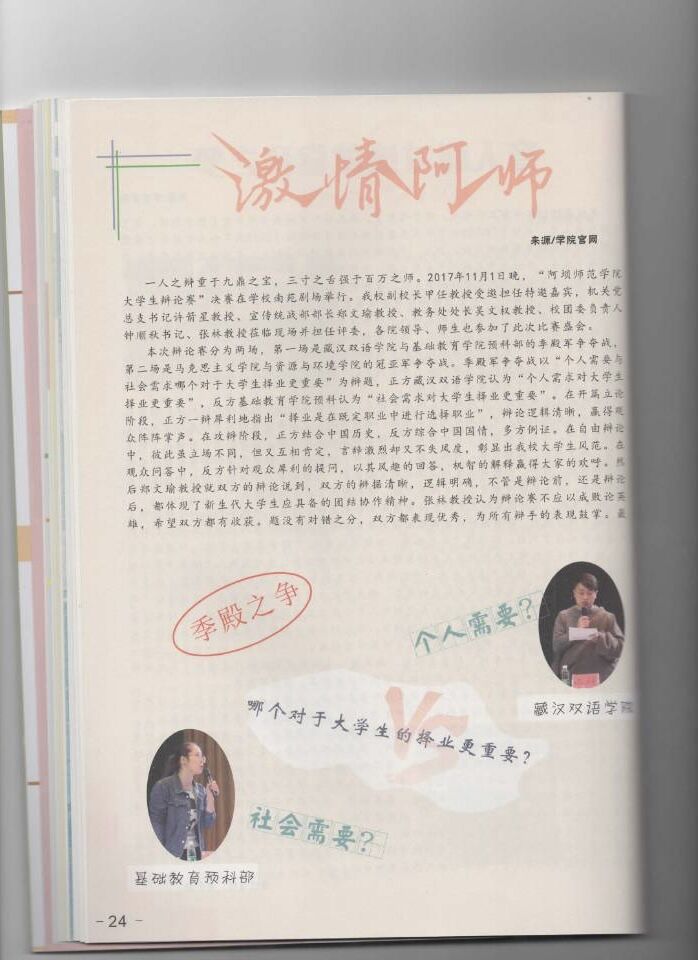 激情阿师
来源/学院官网
一人之辩重于九鼎之宝,三寸之舌强于百万之师。2017年11月1日晚,“阿坝师范学院
大学生辩论赛”决赛在学校南苑剧场举行。我校副校长甲任教授受邀担任特邀嘉宾,机关党
总支书记许箭星教授、宣传统战部部长郑文瑜教授、教务处处长吴文权教授、校团委负责人
钟顺秋书记、张林教授莅临现场并担任评委,各院领导、师生也参加了此次比赛盛会。
本次辩论赛分为两场,第一场是藏汉双语学院与基础教育学院预科部的季殿军争夺战,
第二场是马克思主义学院与资源与环境学院的冠亚军争夺战。季殿军争夺战以“个人需要与
社会需求哪个对于大学生择业更重要”为辩题,正方藏汉双语学院认为“个人需求对大学生
择业更重要”,反方基础教育学院预科认为“社会需求对大学生择业更重要”。在开篇立论
阶段,正方一辩犀利地指出“择业是在既定职业中进行选择职业”,辩论逻辑清晰,赢得观
众阵阵掌声。在攻辩阶段,正方结合中国历史,反方综合中国国情,多方例证。在自由辩论
中,彼此虽立场不同,但又互相肯定,言辞激烈却又不失风度,彰显出我校大学生风范。在
观众问答中,反方针对观众犀利的提问,以其风趣的回答,机智的解释赢得大家的欢呼。然
后郑文瑜教授就双方的辩论说到,双方的辩据清晰,逻辑明确,不管是辩论前,还是辩论
后,都体现了新生代大学生应具备的团结协作精神。张林教授认为辩论赛不应以成败论英
雄,希望双方都有收获。题没有对错之分,双方都表现优秀,为所有辩手的表现鼓掌。最
季殿之争
个人需要?
藏汉双语学院
VS
哪个对于大学生的择业更重要?
社会需要?
基础教育预科部
- 24 -